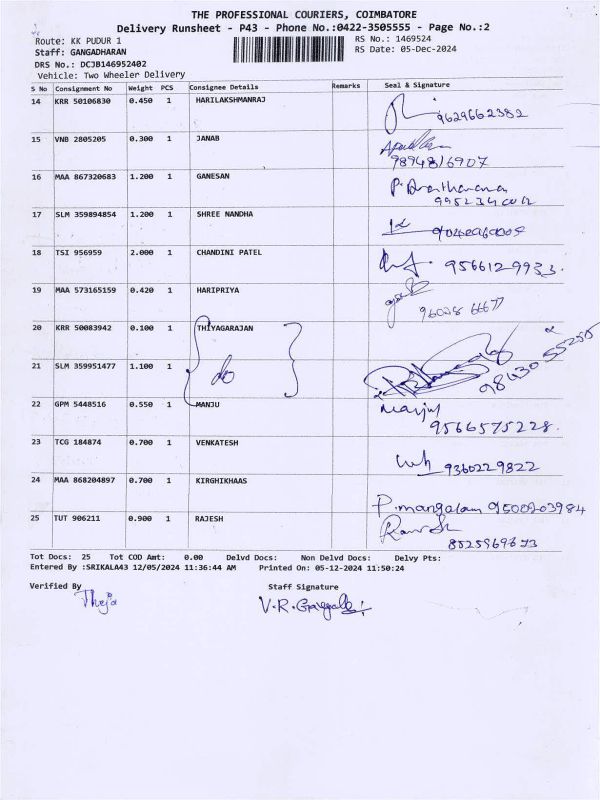 THE PROFESSIONAL COURIERS, COIMBATORE
Delivery Runsheet - P43 - Phone No.:0422-3505555 - Page No.:2
Route: KK PUDUR 1 RS No.: 1469524
Staff: GANGADHARAN RS Date: 05-Dec-2024
DRS No.: DCJB146952402
Vehicle: Two Wheeler Delivery
S No Consignment No Weight PCS Consignee Details Remarks Seal & Signature
14 KRR 50106830 0.450 1 HARILAKSHMANRAJ 9629662382
15 VNB 2805205 0.300 1 JANAB
9894816907
16 MAA 867320683 1.200 1 GANESAN
17 SLM 359894854 1.200 1 SHREE NANDHA
18 TSI 956959 2.000 1 CHANDINI PATEL 9566129933.
19 MAA 573165159 0.420 1 HARIPRIYA
96028 66677
20 KRR 50083942 0.100 1 THIYAGARAJAN
21 SLM 359951477 1.100 1 do 98430 55255
22 GPM 5448516 0.550 1 MANJU Manju
9566575228.
23 TCG 184874 0.700 1 VENKATESH 9360229822
24 MAA 868204897 0.700 1 KIRGHIKHAAS
P.mangalam 9500203984
25 TUT 906211 0.900 1 RAJESH
Tot Docs: 25 Tot COD Amt: 0.00 Delvd Docs: Non Delvd Docs: Delvy Pts:
Entered By :SRIKALA43 12/05/2024 11:36:44 AM Printed On: 05-12-2024 11:50:24
Verified By Staff Signature
Theja V.R.